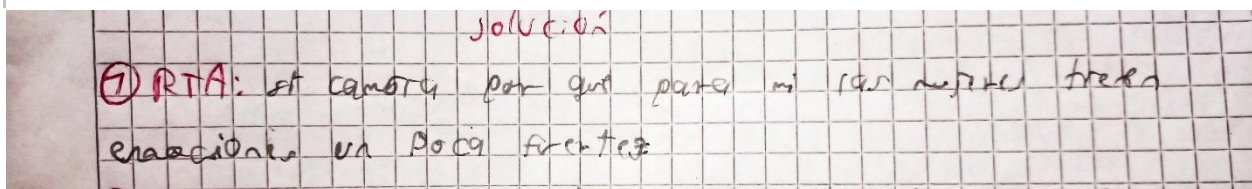 solución
① RTA: si cambra por que para mi las mujires tienen
enabcionis un poca fuertes